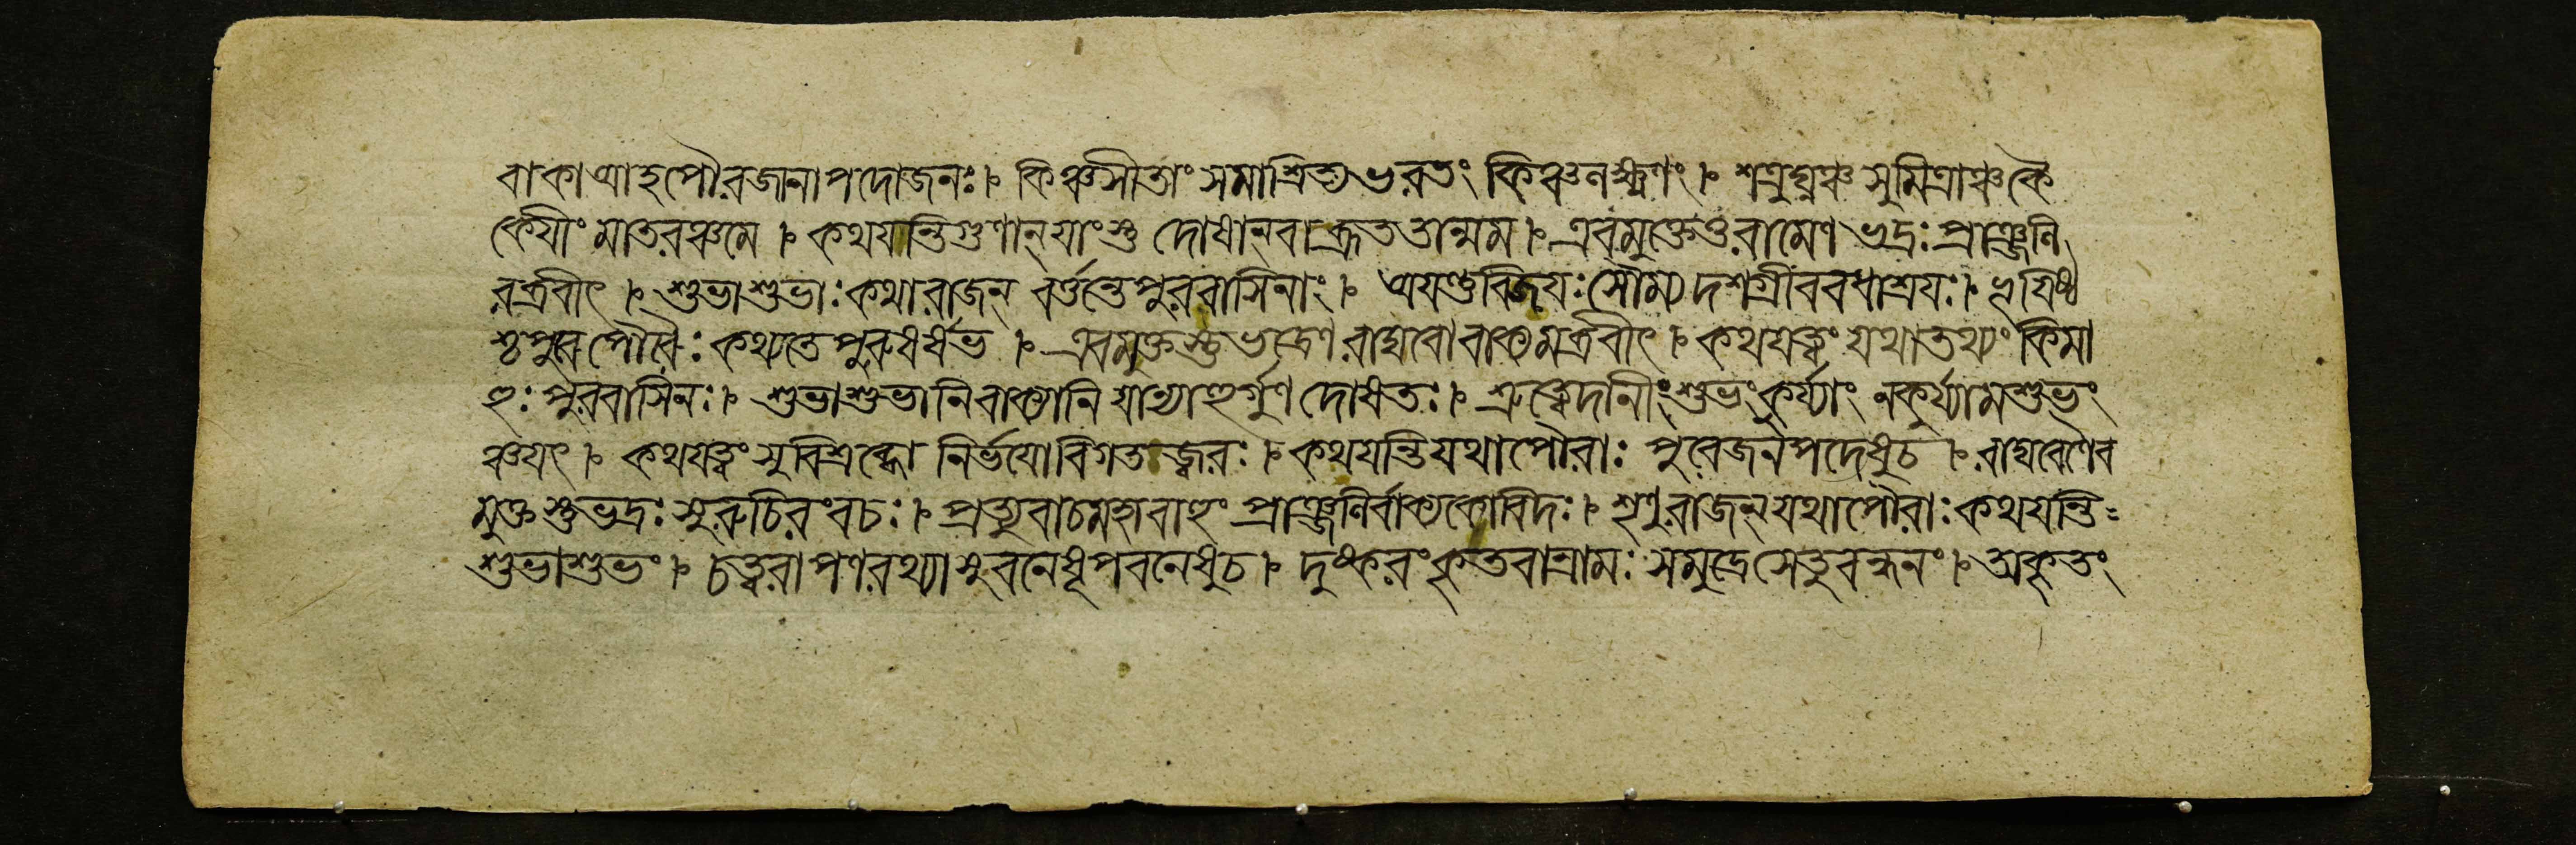 বাকা প্রাহুপৌরজানাপদোজনঃ।৮ কিঞ্চসীতাং সমাশ্রিত্য ভরতং কিঞ্চলক্ষ্মণং।৮ শত্রুঘ্নঞ্চ সুমিত্রাঞ্চকৈ
কেযীং মাতরঞ্চমে ।৮ কথযন্তিগুণান্ যাংস্তু দোষান্‌বা ব্রূততান্মম ।৮ এবমুক্তেতুরামেণ ভদ্রঃ প্রাঞ্জলি
রব্রবীৎ ।৮ শুভাশুভাঃ কথারাজন্ বর্ত্তন্তে পুরবাসিনাং।৮ অযন্তুবিজযঃ সৌম্য দশগ্রীববধাশ্রযঃ।৮ ভূযিষ্ঠ
শ্চপুরে পৌরৈঃ কথ্যতে পুরুষর্ষভ ।৮ এবমুক্তস্তুভদ্রেণ রাঘবো বাক্যমব্রবীৎ।৮ কথযত্বং যথাতথ্যং কিমা
হুঃ পুরবাসিনঃ।৮ শুভাশুভানিবাক্যানি যান্যাহুর্গুণ দোষতঃ।৮ শ্রুত্বেদানীং শুভং কুর্য্যাং নকুর্য্যামশুভং
ঞ্চযৎ।৮ কথযত্বং সুবিশ্রব্ধো নির্ভযোবিগতজ্বরঃ।৮ কথযন্তি যথাপৌরাঃ পুরেজনপদেষুচ ।৮ রাঘবেণৈব
মুক্তস্তুভদ্রঃ সুরুচিরংবচঃ।৮ প্রত্যুবাচমহাবাহুং প্রাঞ্জলির্বাক্যকোবিদঃ।৮ শৃণুরাজন্ যথাপৌরাঃ কথযন্তি
শুভাশুভং।৮ চত্বরাপণরথ্যাসুবনেষূপবনেষুচ।৮ দুষ্করং কৃতবান্রামঃ সমুদ্রেসেতুবন্ধনং।৮ অকৃতং